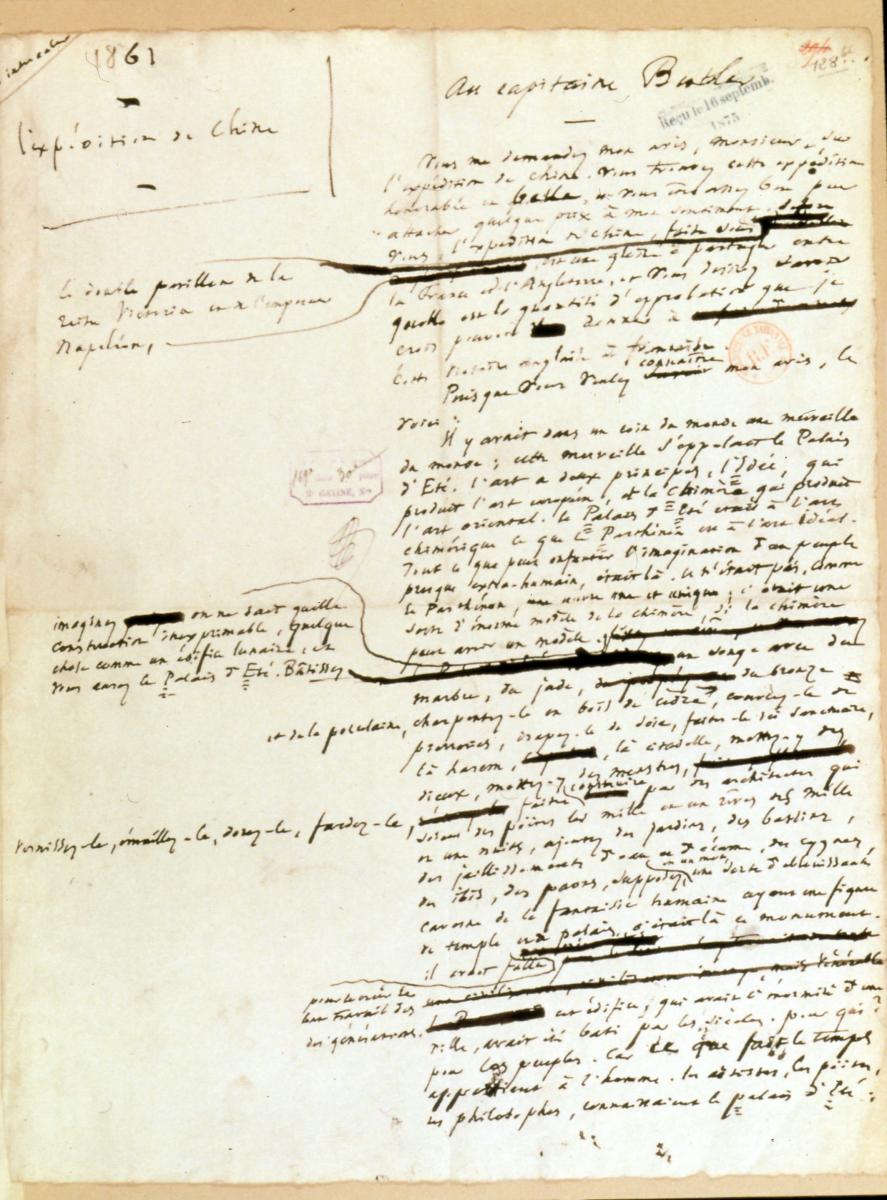 1861
l'expédition de Chine
Au capitaine Butler
Reçu le 16 septemb.
1875
128
Vous me demandez mon avis, monsieur, sur
l'expédition de Chine. Vous trouvez cette expédition
honorable et belle, et vous êtes assez bon pour
attacher quelque prix à mon sentiment. Selon
vous, l'expédition de Chine, faite sous
le double pavillon de la
reine Victoria et de l'empereur
Napoléon,
est une gloire à partager entre
la France et l'Angleterre, et vous désirez savoir
quelle est la quantité d'approbation que je
crois pouvoir donner à
cette victoire anglaise et française.
Puisque vous voulez connaître mon avis, le
voici :
Il y avait dans un coin du monde une merveille
du monde ; cette merveille s'appelait le Palais
d'Eté. L'art a deux principes, l'Idée, qui
produit l'art européen, et la Chimère, qui produit
l'art oriental. Le Palais d'Eté était à l'art
chimérique ce que le Parthénon est à l'art idéal.
Tout ce que peut enfanter l'imagination d'un peuple
presque extra-humain, était là. Ce n'était pas, comme
le Parthénon, une œuvre une et unique ; c'était une
sorte d'énorme modèle de la chimère, si la chimère
peut avoir un modèle.
imaginez on ne sait quelle
construction inexprimable, quelque
chose comme un édifice lunaire, et
vous aurez le Palais d'Eté. Bâtissez
un songe avec du
marbre, du jade, du bronze
et de la porcelaine,
charpentez-le en bois de cèdre, couvrez-le de
pierreries, drapez-le de soie, faites-le ici sanctuaire,
là harem, là citadelle, mettez-y des
dieux, mettez-y des monstres,
vernissez-le, émaillez-le, dorez-le, fardez-le,
faites construire par des architectes qui
soient des poètes les mille et un rêves des mille
et une nuits, ajoutez des jardins, des bassins,
des jaillissements d'eau et d'écume, des cygnes,
des ibis, des paons, supposez en un mot une sorte d'éblouissante
caverne de la fantaisie humaine ayant une figure
de temple et de palais, c'était là ce monument.
il avait fallu
pour le créer le
long travail des
générations.
cet édifice, qui avait l'énormité d'une
ville, avait été bâti par les siècles. pour qui ?
pour les peuples. Car ce que fait le temps
appartient à l'homme. les artistes, les poètes,
les philosophes, connaissaient le palais d'Eté ;